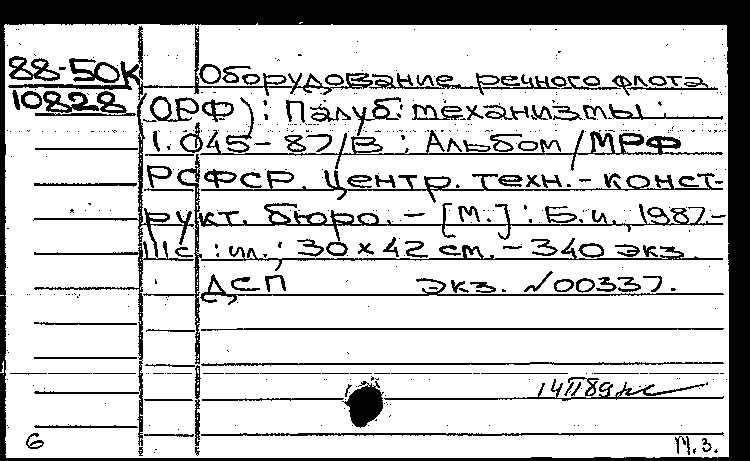 88-50К
10828
Оборудование речного флота
(ОРФ): Палуб. механизмы:
1.045-87/В: Альбом/МРФ
РСФСР. Центр. техн.-конст-
рукт. бюро. - [М.]: Б.и., 1987-
111с.: ил.; 30×42 см. - 340 экз.
ДСП экз. №00337.
14 II 89
6
М.З.